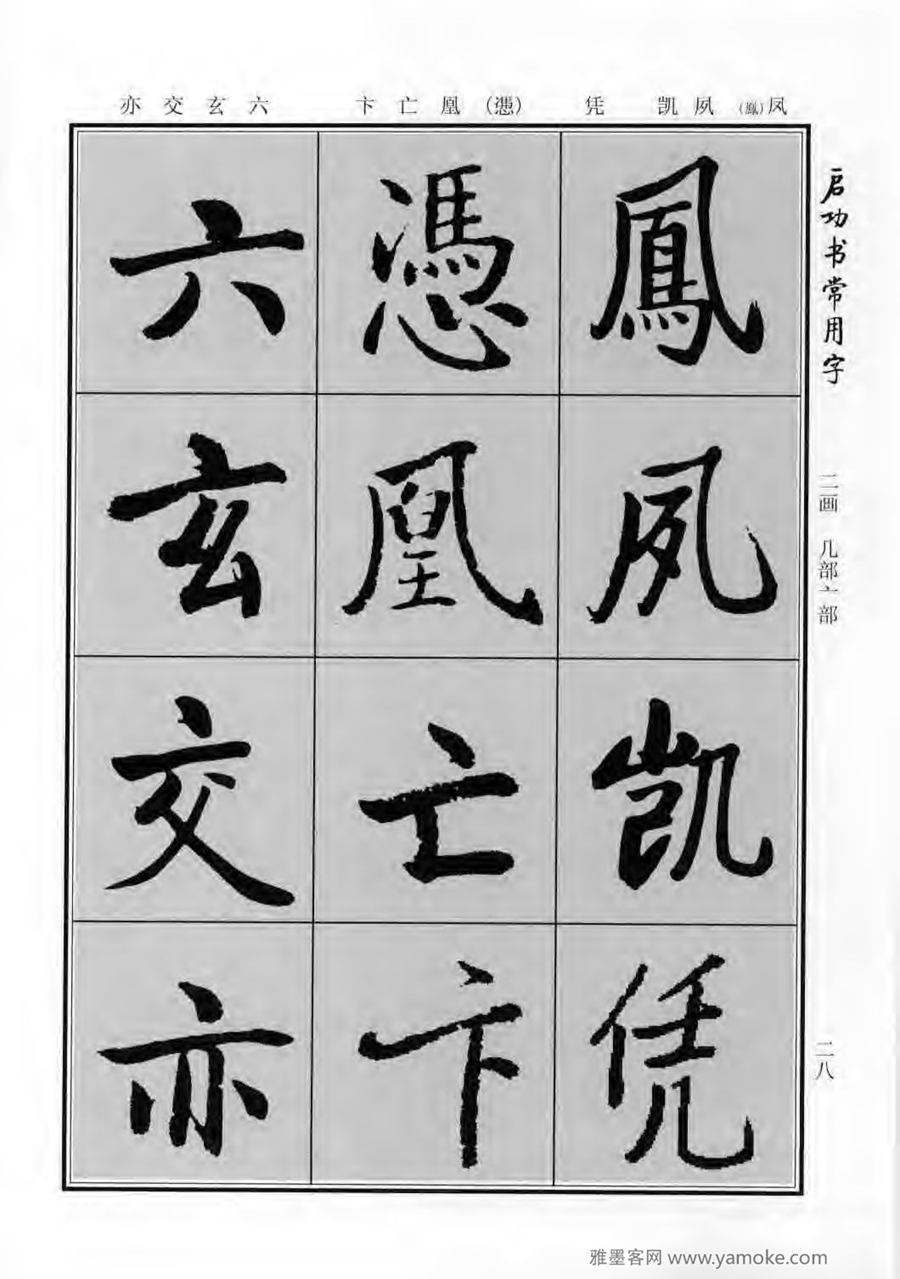 亦交玄六 卞亡凰(憑) 凭 凯夙(鳳)凤
鳳夙凯凭
憑凰亡卞
六玄交亦
启功书常用字
二画 几部亠部
二八
雅墨客网 www.yamoke.com